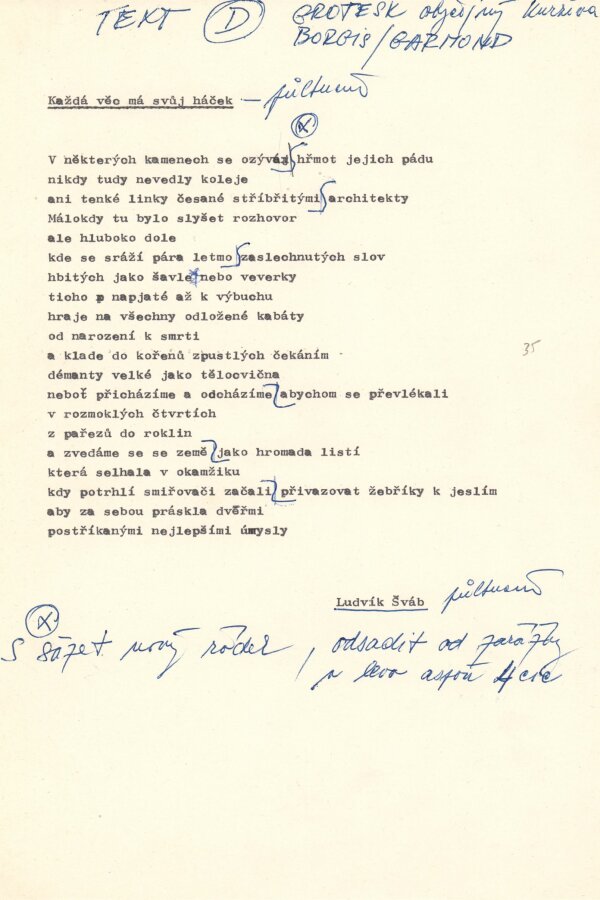 TEXT D GROTESK obyčejný kurziva
BORGIS/GARMOND
Každá věc má svůj háček — půltučně
X
V některých kamenech se ozývá hřmot jejich pádu
nikdy tudy nevedly koleje
ani tenké linky česané stříbřitými architekty
Málokdy tu bylo slyšet rozhovor
ale hluboko dole
kde se sráží pára letmo zaslechnutých slov
hbitých jako šavle nebo veverky
ticho napjaté až k výbuchu
hraje na všechny odložené kabáty
od narození k smrti
a klade do kořenů zpustlých čekáním
démanty velké jako tělocvična
neboť přicházíme a odcházíme abychom se převlékali
v rozmoklých čtvrtích
z pařezů do roklin
a zvedáme se se země jako hromada listí
která selhala v okamžiku
kdy potrhlí smiřovači začali přivazovat žebříky k jeslím
aby za sebou práskla dveřmi
postříkanými nejlepšími úmysly
35
Ludvík Šváb půltučně
X
sázet nový řádek, odsadit od zarážky
vlevo aspoň 4 cic